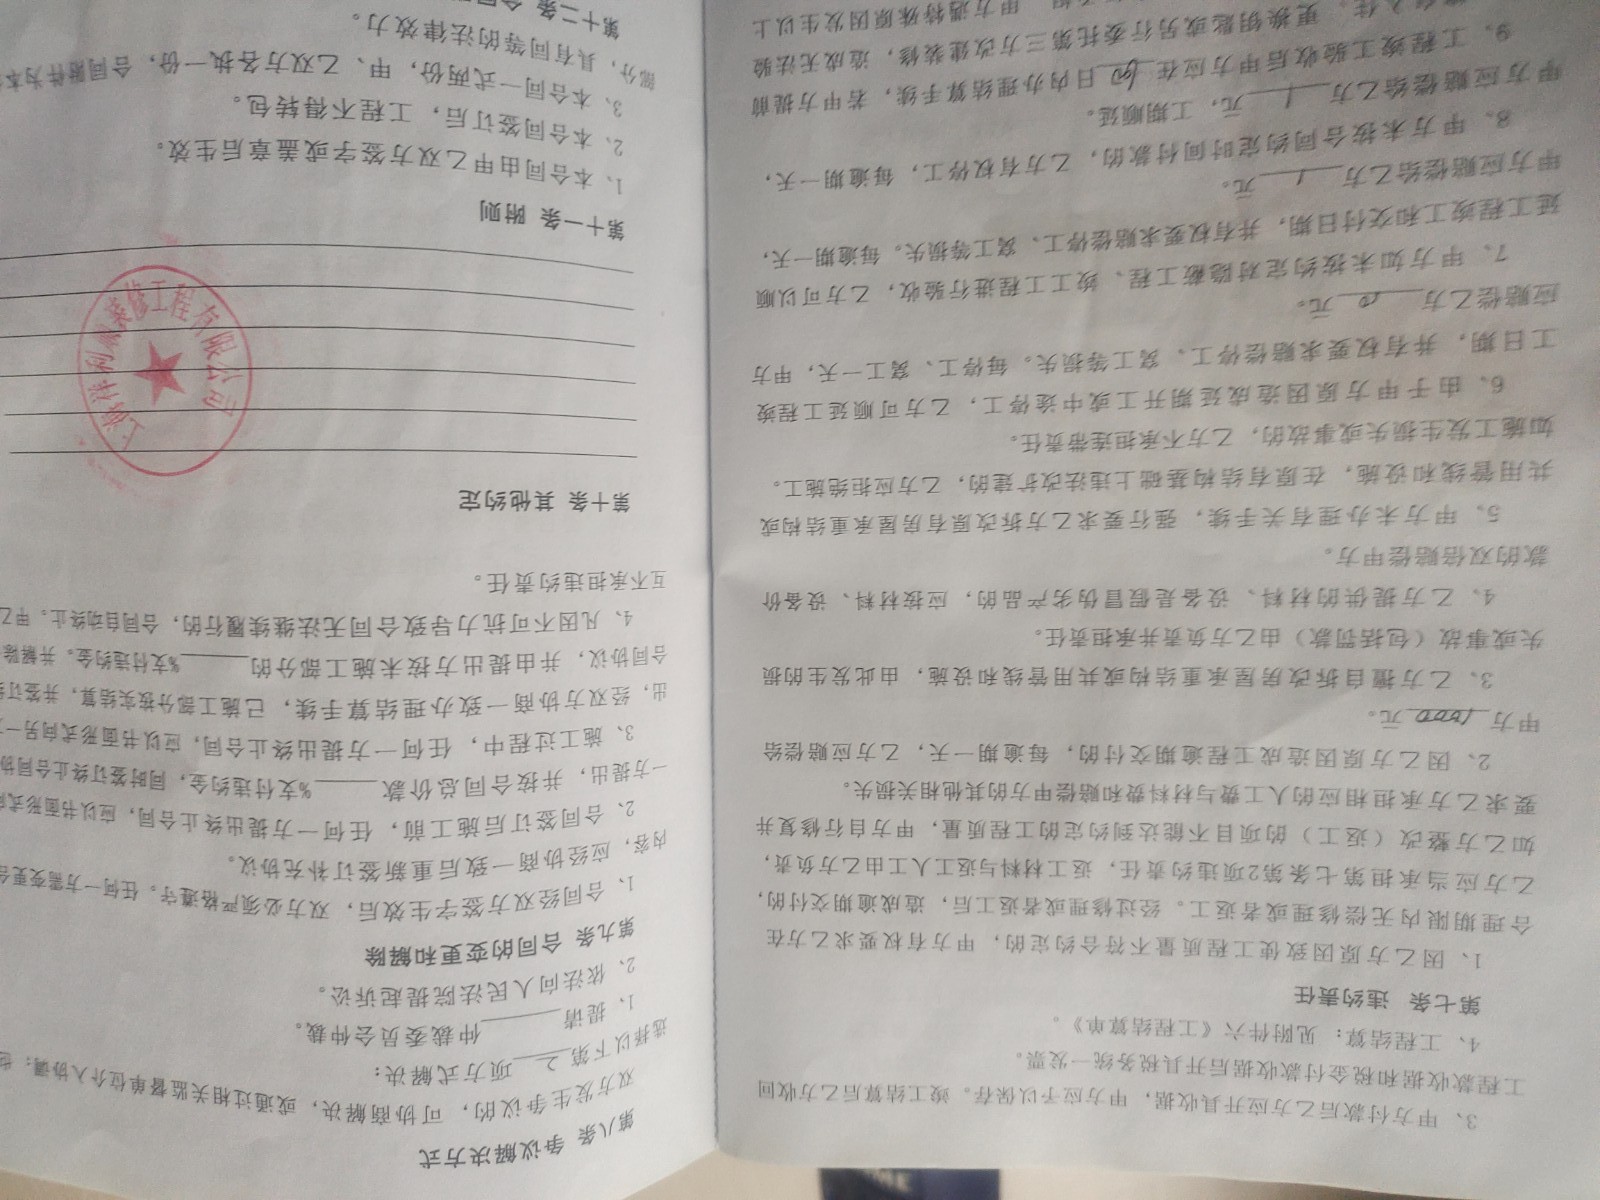 3、甲方付款后乙方应开具收据，甲方应予以保存。竣工结算后乙方收回
工程款收据和税金付款收据后开具税务统一发票。
4、工程结算：见附件六《工程结算单》。
第七条 违约责任
1、因乙方原因致使工程质量不符合约定的，甲方有权要求乙方在
合理期限内无偿修理或者返工。经过修理或者返工后，造成逾期交付的，
乙方应当承担第七条第2项违约责任，返工材料与返工人工由乙方负责，
如乙方整改（返工）的项目不能达到约定的工程质量，甲方自行修复并
要求乙方承担相应的人工费与材料费和赔偿甲方的其他相关损失。
2、因乙方原因造成工程逾期交付的，每逾期一天，乙方应赔偿给
甲方1000元。
3、乙方擅自拆改房屋承重结构或共用管线和设施，由此发生的损
失或事故（包括罚款）由乙方负责并承担责任。
4、乙方提供的材料、设备是假冒伪劣产品的，应按材料、设备价
款的双倍赔偿甲方。
5、甲方未办理有关手续，强行要求乙方拆改原有房屋承重结构或
共用管线和设施，在原有结构基础上违法改扩建的，乙方应拒绝施工。
如施工发生损失或事故的，乙方不承担连带责任。
6、由于甲方原因造成延期开工或中途停工，乙方可顺延工程竣
工日期，并有权要求赔偿停工、窝工等损失。每停工、窝工一天，甲方
应赔偿乙方 0 元。
7、甲方如未按约定对隐蔽工程、竣工工程进行验收，乙方可以顺
延工程竣工和交付日期，并有权要求赔偿停工、窝工等损失。每逾期一天，
甲方应赔偿给乙方 / 元。
8、甲方未按合同约定时间付款的，乙方有权停工，每逾期一天，
甲方应赔偿给乙方 / 元，工期顺延。
9、工程竣工验收后甲方应在 60 日内办理结算手续，若甲方提前
入住、更换钥匙或另行委托第三方改建装修，造成无法验
甲方遇特殊原因发生以上
第八条 争议解决方式
双方发生争议的，可协商解决，或通过相关监督单位介入协调；
选择以下第 2 项方式解决：
1、提请______仲裁委员会仲裁。
2、依法向人民法院提起诉讼。
第九条 合同的变更和解除
1、合同经双方签字生效后，双方必须严格遵守。任何一方需变更合
内容，应经协商一致后重新签订补充协议。
2、合同签订后施工前，任何一方提出终止合同，应以书面形式
一方提出，并按合同总价款______%支付违约金，同时签订终止合同协
3、施工过程中，任何一方提出终止合同，应以书面形式向另一
出，经双方协商一致办理结算手续，已施工部分按实结算，并签订
合同协议，并由提出方按未施工部分的______%支付违约金。并解除
4、凡因不可抗力导致合同无法继续履行的，合同自动终止。甲乙
互不承担违约责任。
第十条 其他约定
上海祥和源装修工程有限公司
第十一条 附则
1、本合同由甲乙双方签字或盖章后生效。
2、本合同签订后，工程不得转包。
3、本合同一式两份，甲、乙双方各执一份，合同附件为本
部分，具有同等的法律效力。
第十二条